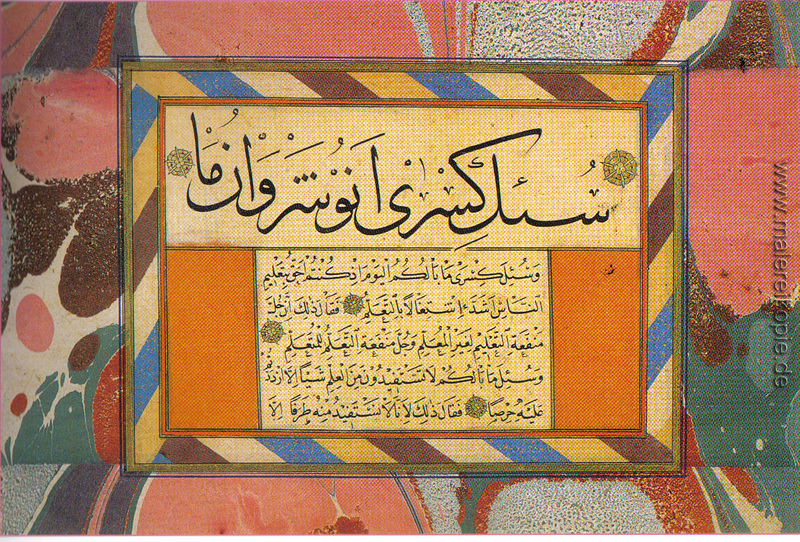 سُئِلَ كِسْرٰى اَنُوشَرْوَانْ مَا
وَسُئِلَ كِسْرٰى مَا بَالُكُمُ الْيَوْمَ اِذْ كُنْتُمْ اَحَقَّ بِتَعْلِيمِ
النَّاسِ اَشَدَّ اِشْتِغَالًا بِالتَّعَلُّمِ فَقَالَ ذٰلِكَ اَنَّ جُلَّ
مَنْفَعَةِ التَّعْلِيمِ لِغَيْرِ الْمُعَلِّمِ وَجُلَّ مَنْفَعَةِ التَّعَلُّمِ لِلْمُتَعَلِّمِ
وَسُئِلَ مَا بَالُكُمْ لَا تَسْتَفِيدُونَ مِنَ الْعِلْمِ شَيْئًا اِلَّا ازْدَدْتُمْ
عَلَيْهِ حِرْصًا فَقَالَ ذٰلِكَ لِاَنَّا لَا نَسْتَفِيدُ مِنْهُ طَرَفًا اِلَّا
www.malereikopie.de